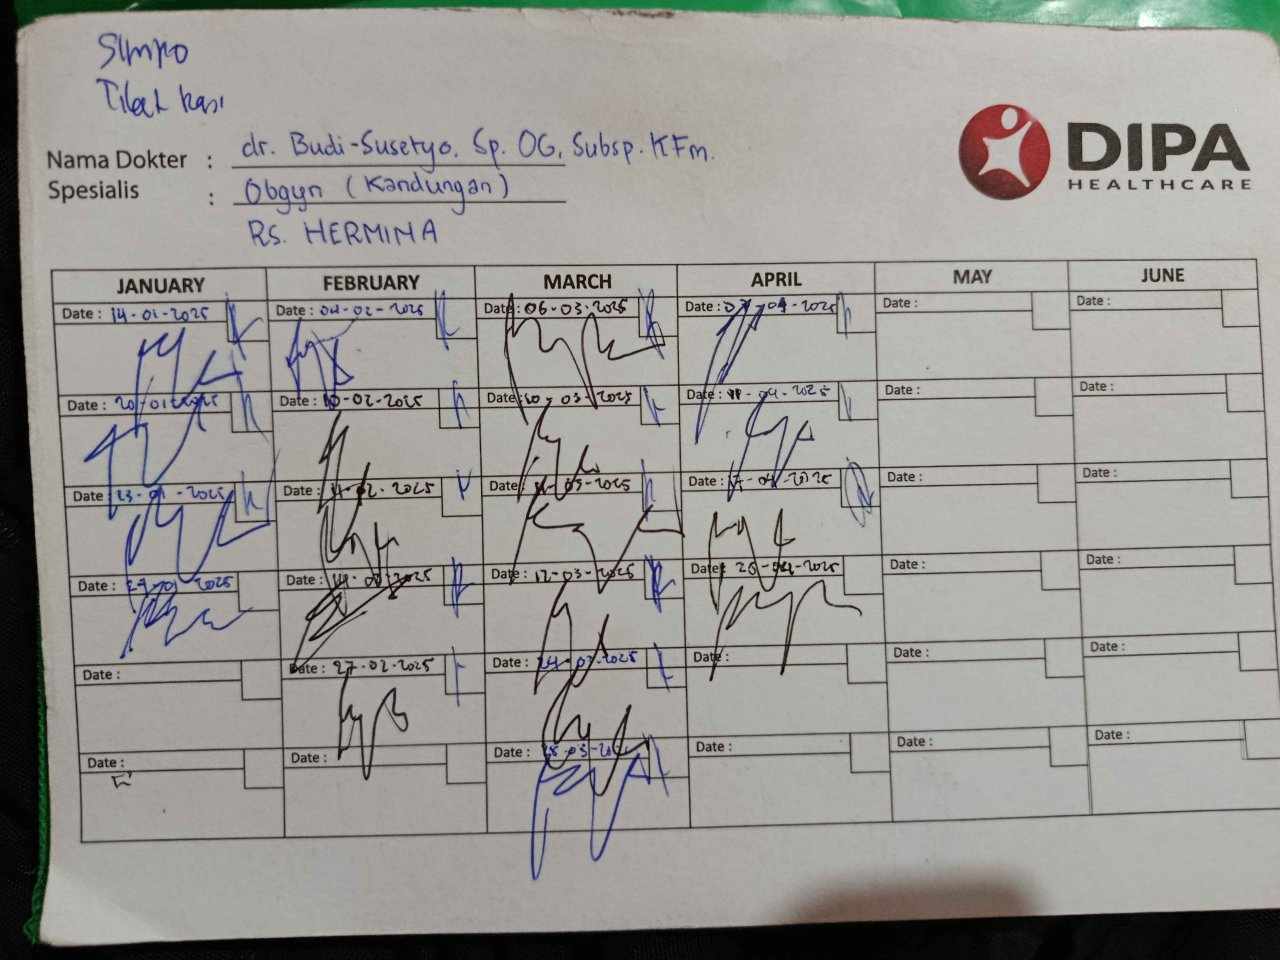 Simpo
DIPA
HEALTHCARE
Nama Dokter : dr. Budi-Susetyo. Sp. OG, Subsp. KFm.
Spesialis : Obgyn (Kandungan)
RS. HERMINA
JANUARY FEBRUARY MARCH APRIL MAY JUNE
Date : 14-01-2025 Date : 04-02-2025 Date : 06-03-2025 Date : 07-04-2025 Date : Date :
Date : 20-01-2025 Date : 10-02-2025 Date : 10-03-2025 Date : 11-04-2025 Date : Date :
Date : 23-01-2025 Date : 11-02-2025 Date : 11-03-2025 Date : 17-04-2025 Date : Date :
Date : 27-01-2025 Date : 14-02-2025 Date : 12-03-2025 Date : 26-04-2025 Date : Date :
Date : Date : 27-02-2025 Date : 24-03-2025 Date : Date : Date :
Date : Date : Date : 28-03-2025 Date : Date : Date :